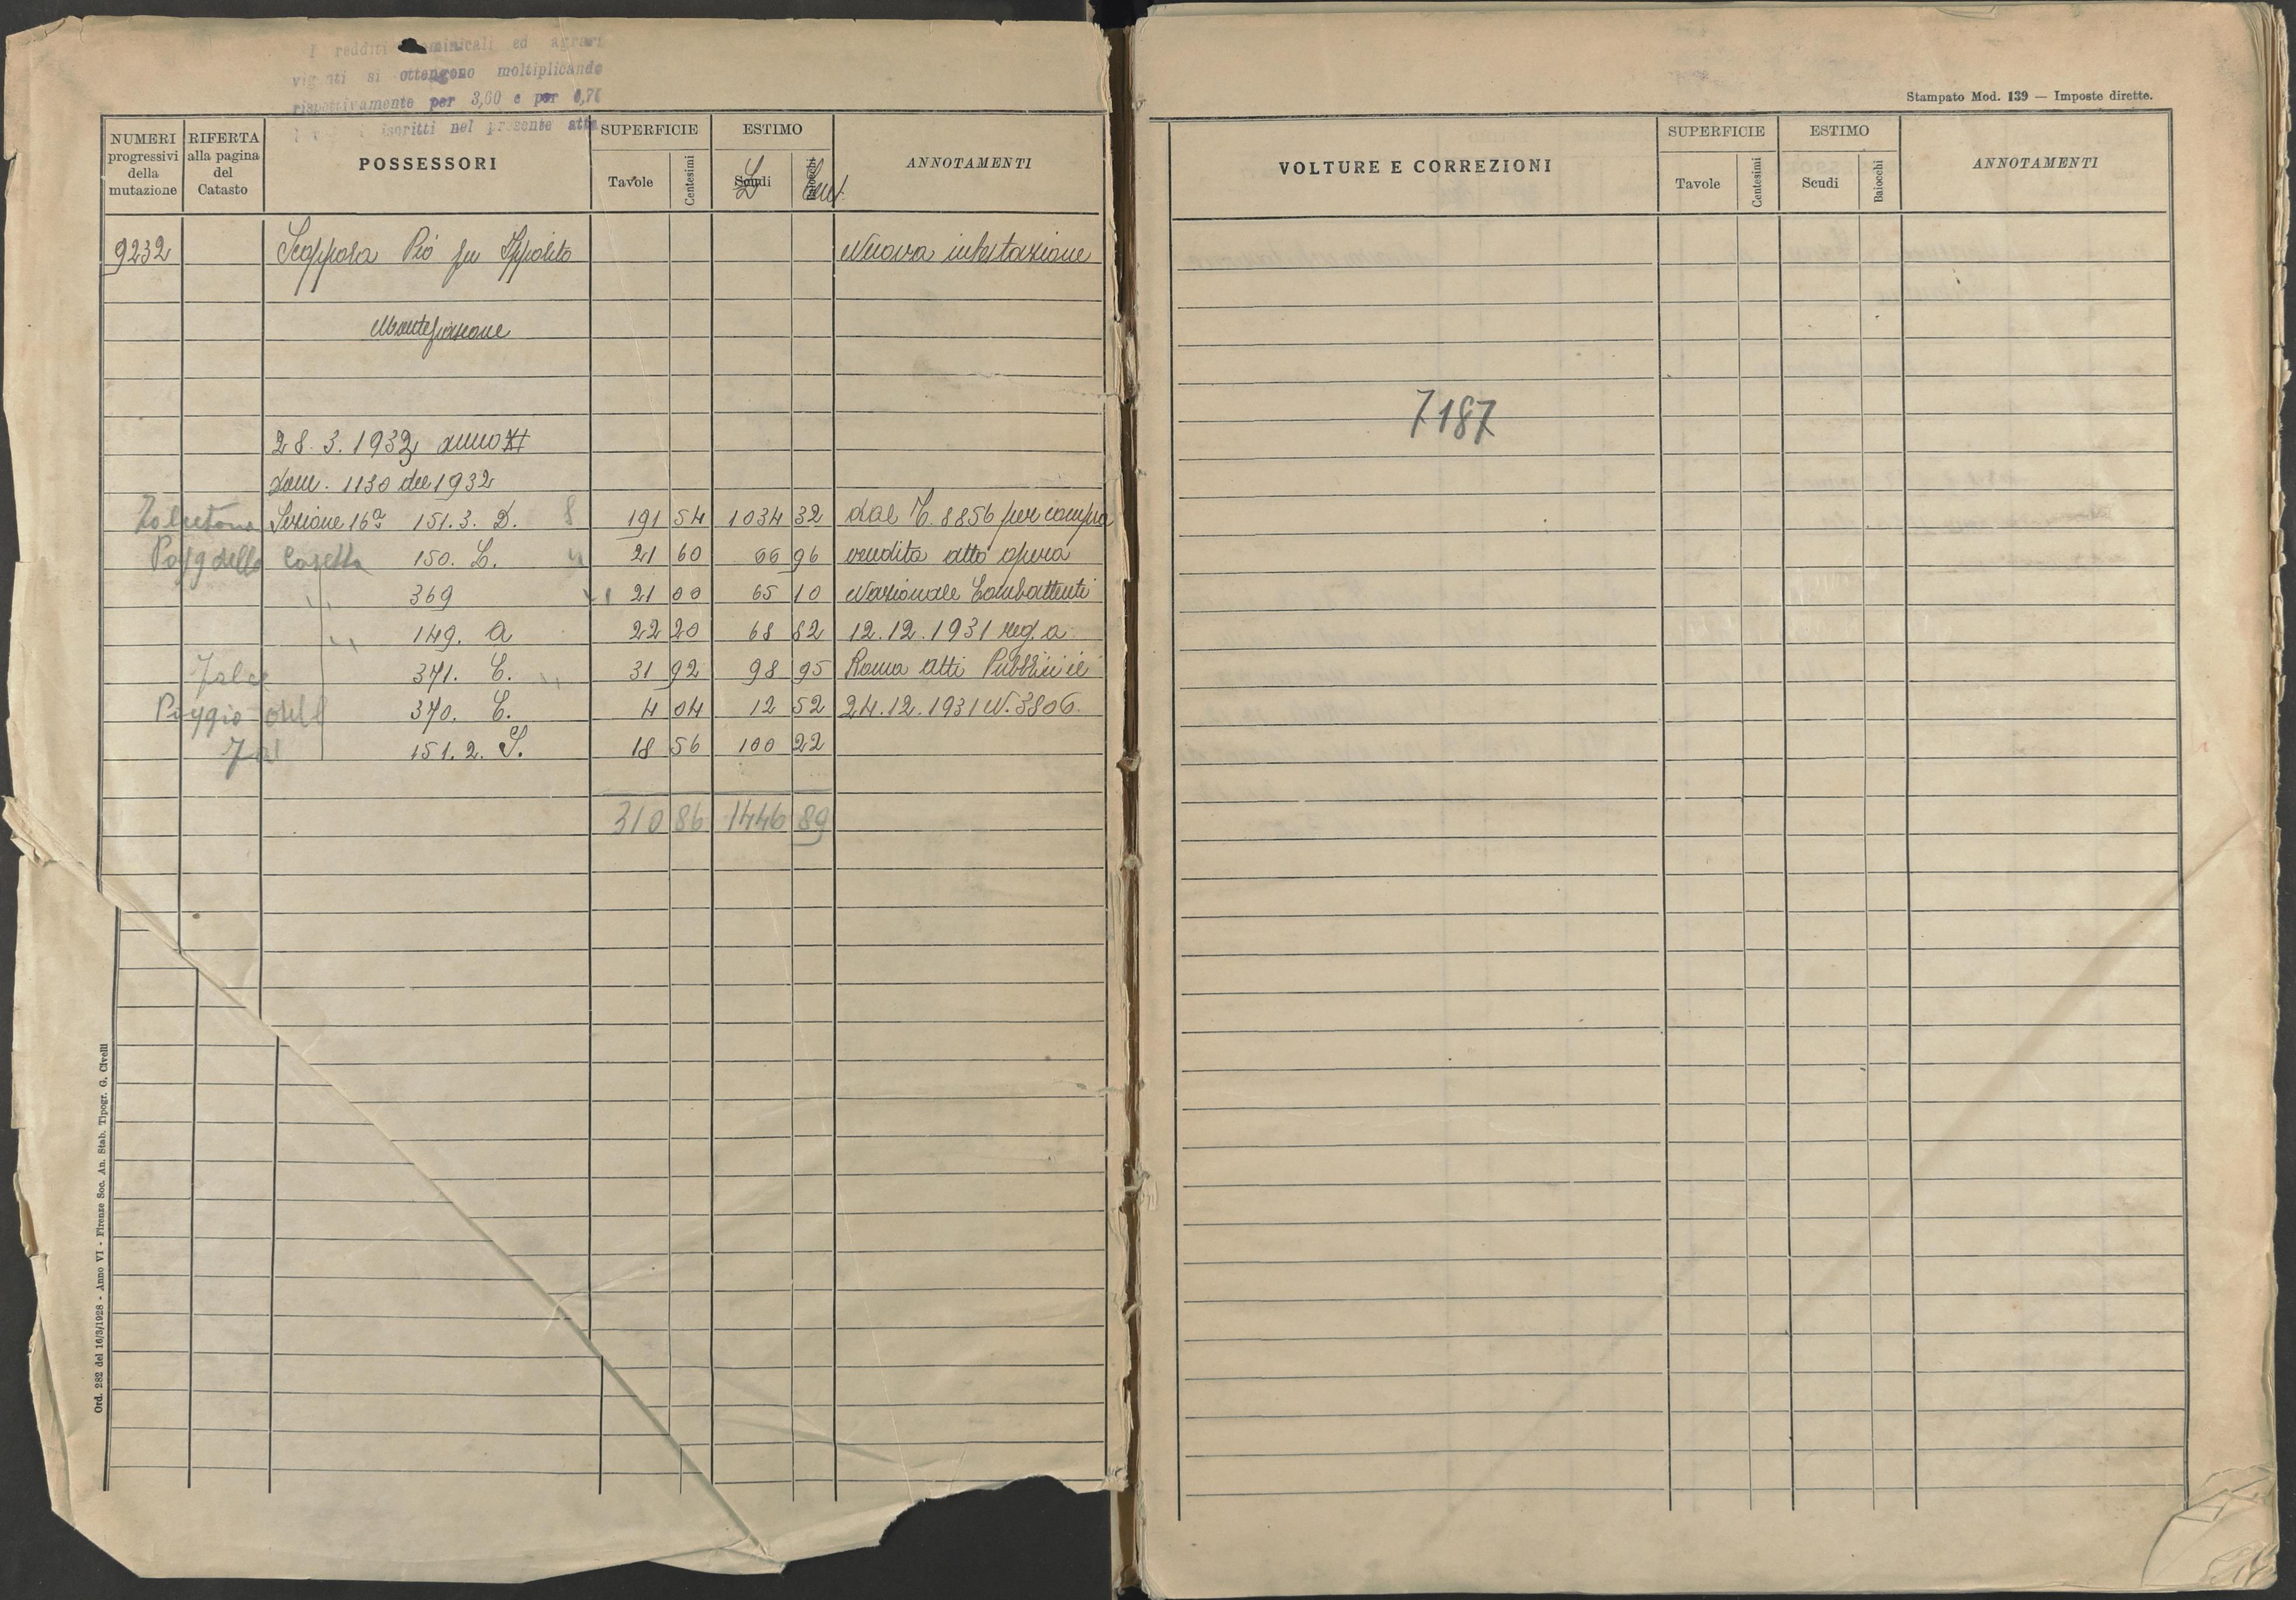 I redditi dominicali ed agrari
vigenti si ottengono moltiplicando
rispettivamente per 3,60 e per 0,70
iscritti nel presente atto
NUMERI progressivi della mutazione
RIFERTA alla pagina del Catasto
POSSESSORI
SUPERFICIE
Tavole Centesimi
ESTIMO
Scudi Baiocchi
L Cent.
ANNOTAMENTI
9232 Scoppola Pio fu Ippolito Nuova intestazione
Montefiascone
28.3.1932 anno XI
dom. 1130 del 1932
Sezione 16a 151.3. D. 191 54 1034 32 dal C. 8856 per compra
Pogg della Casetta 150. L. 21 60 66 96 vendita atto opera
" 369 21 00 65 10 Nazionale Combattenti
" 149. a 22 20 68 82 12.12.1931 reg. a
371. C. 31 92 98 95 Roma Atti Pubblici il
Poggio dell 370. C. 4 04 12 52 24.12.1931 N. 3806.
151.2. S. 18 56 100 22
310 86 1446 89
Ord. 282 del 16/3/1928 - Anno VI - Firenze Soc. An. Stab. Tipogr. G. Civelli
Stampato Mod. 139 — Imposte dirette.
VOLTURE E CORREZIONI
SUPERFICIE
Tavole Centesimi
ESTIMO
Scudi Baiocchi
ANNOTAMENTI
7187